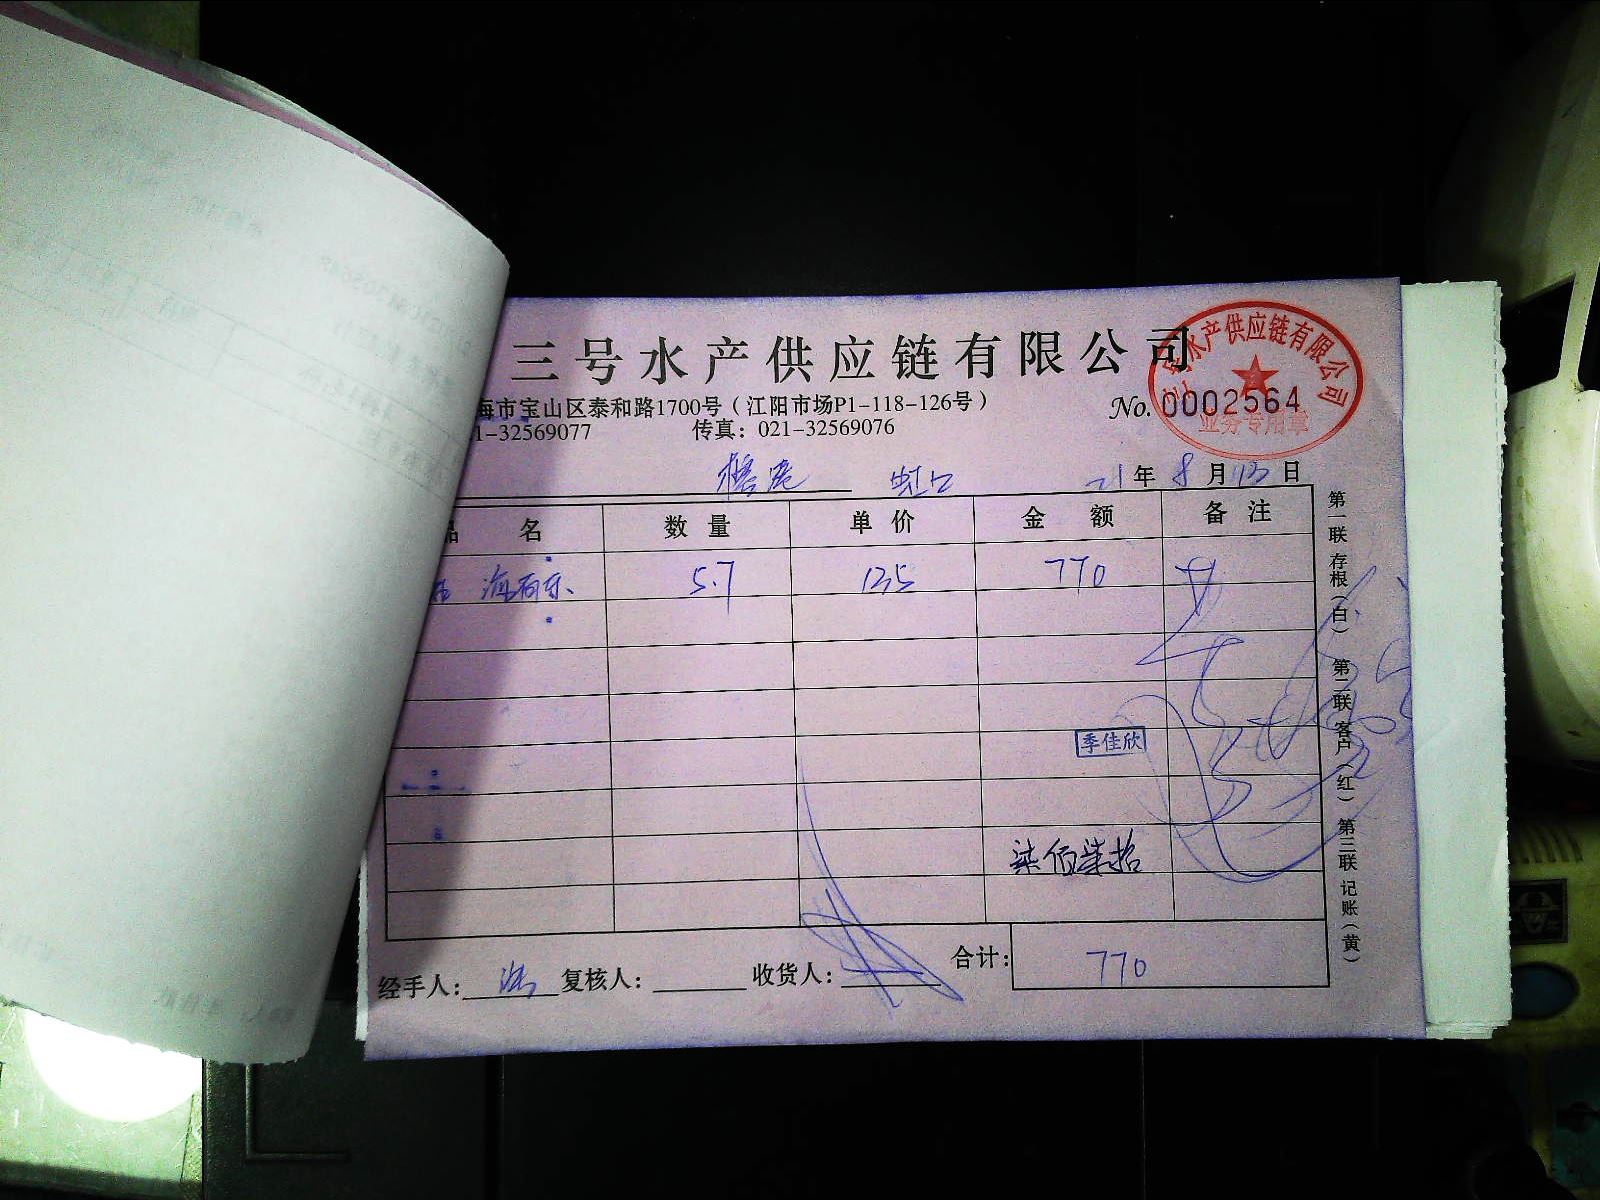 三号水产供应链有限公司
水产供应链有限公司
业务专用章
海市宝山区泰和路1700号（江阳市场P1-118-126号）
No. 0002564
1-32569077 传真：021-32569076
虹口 21年8月13日
品名 数量 单价 金额 备注
5.7 135 770
季佳欣
柒佰柒拾
经手人： 复核人： 收货人： 合计： 770
第一联 存根（白） 第二联 客户（红） 第三联 记账（黄）